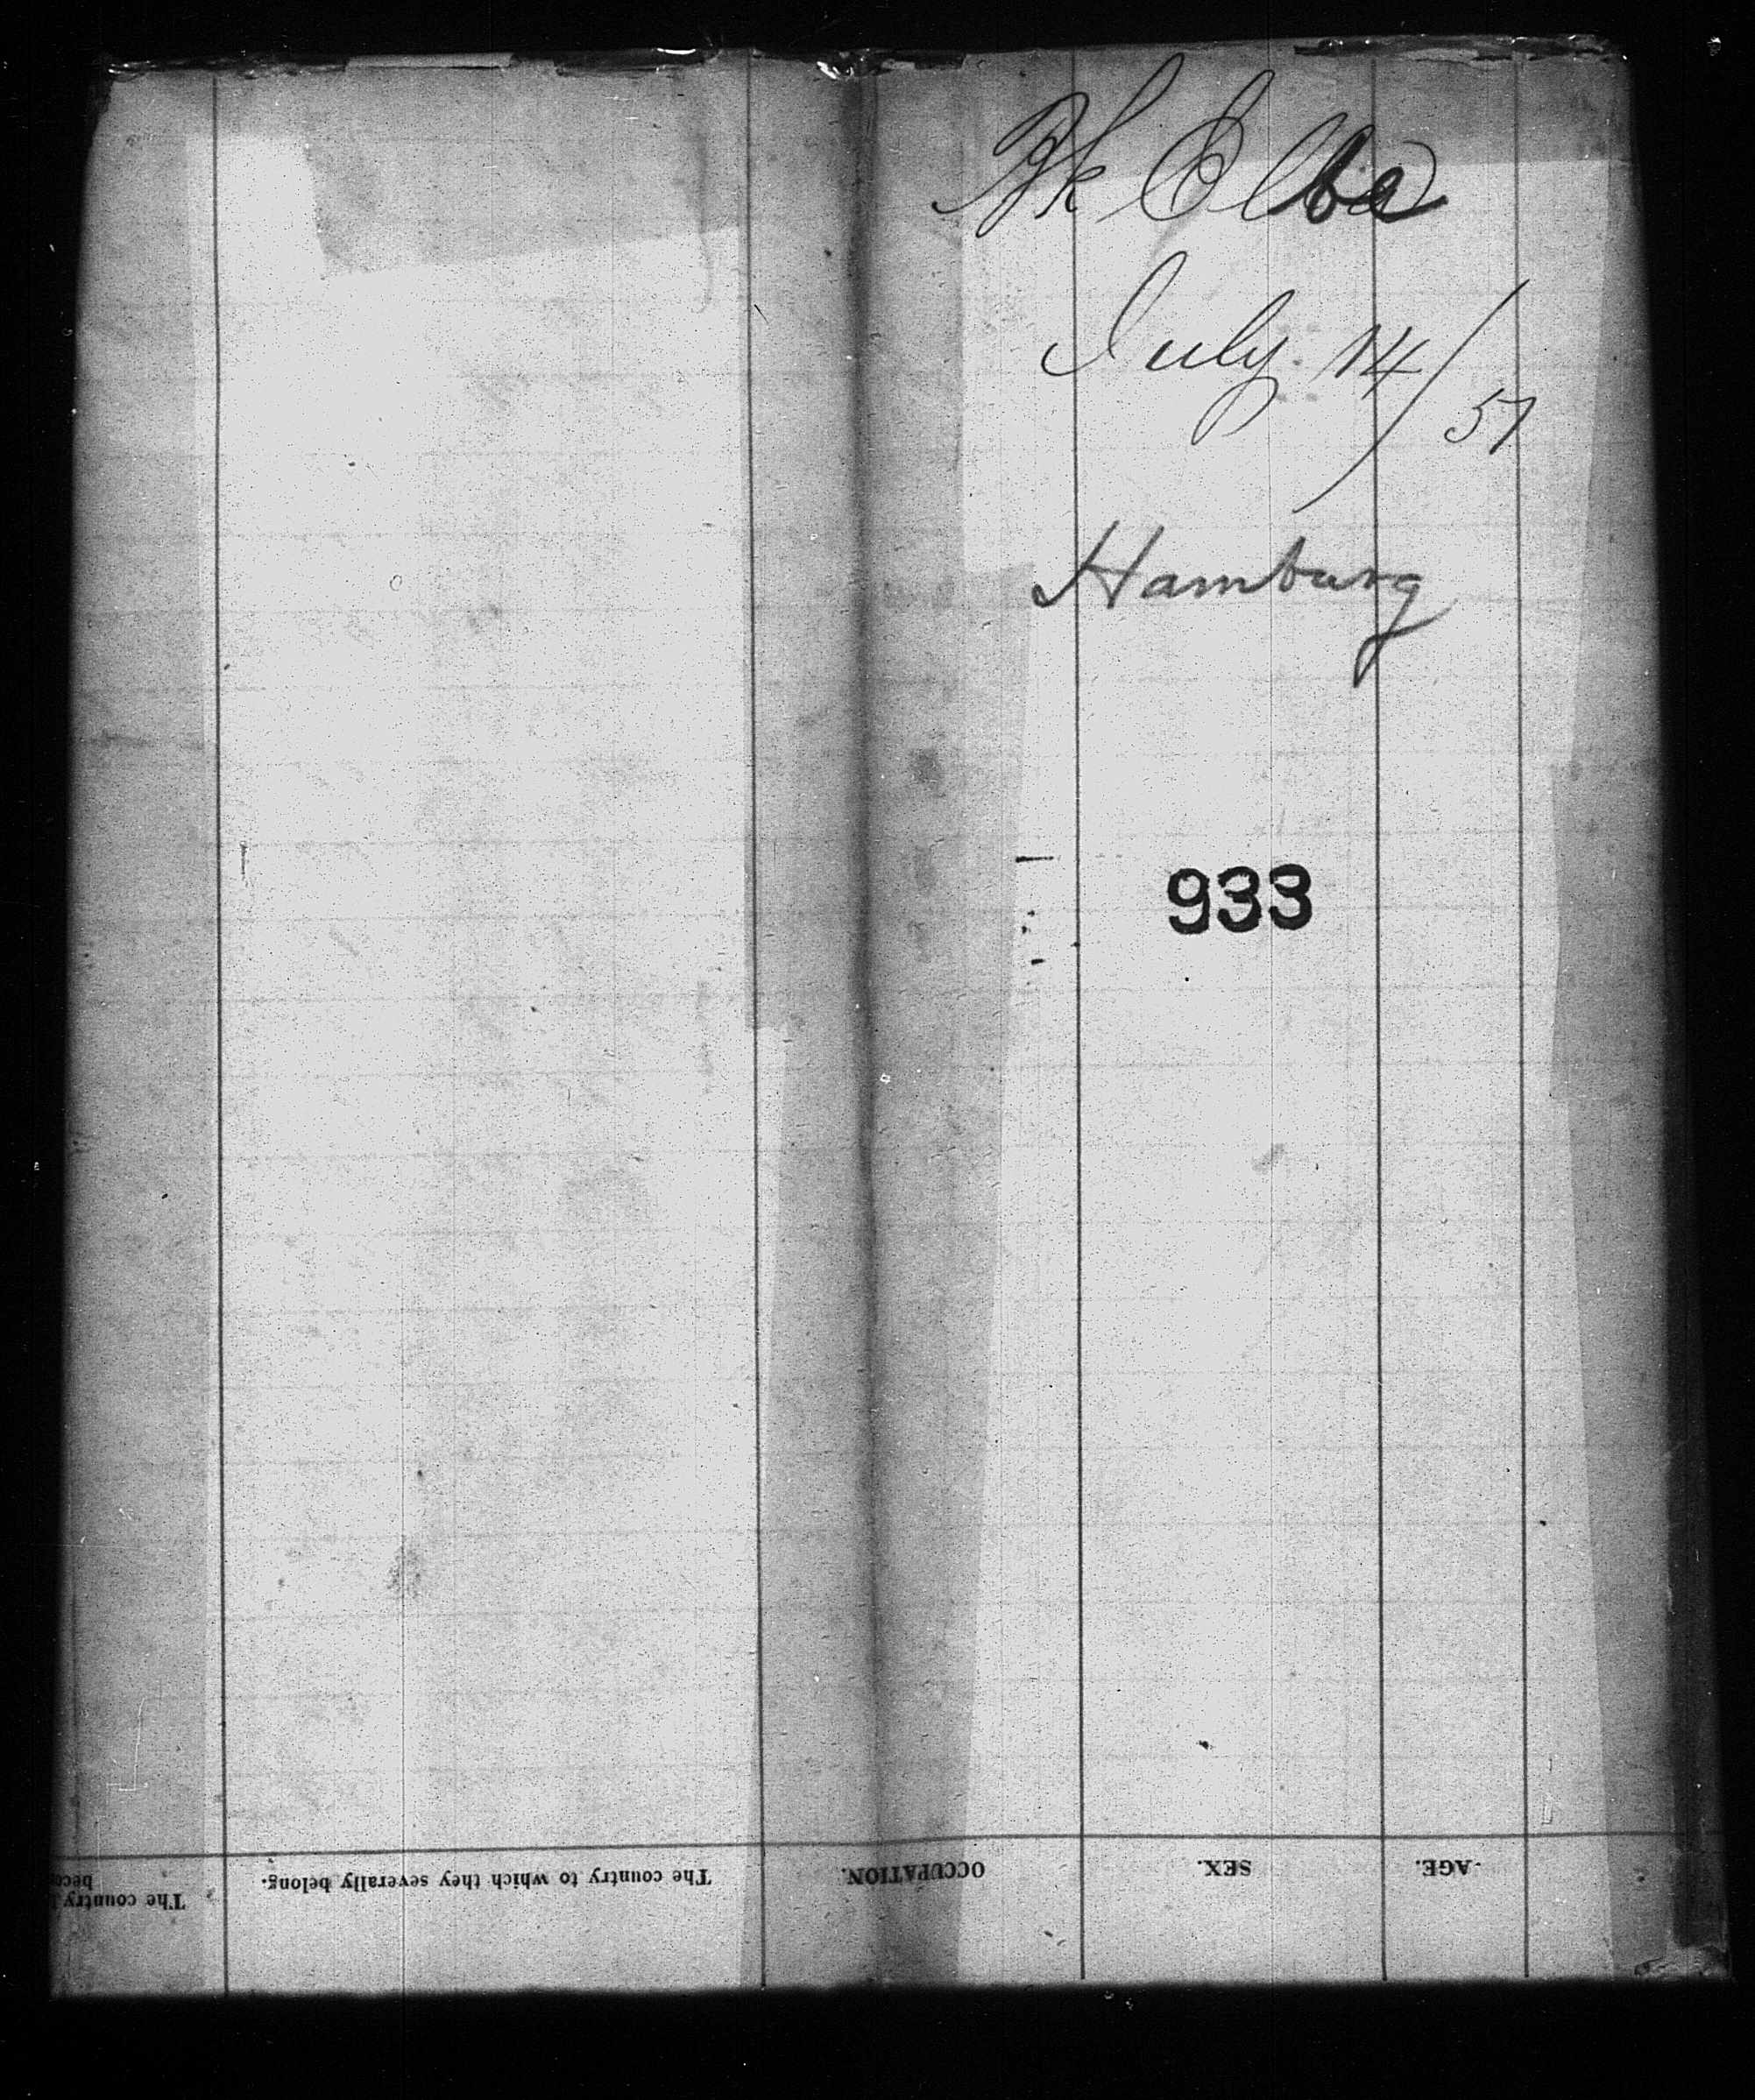 Bk Elbe
July 14/51
Hamburg
933
AGE.
SEX.
OCCUPATION.
The country to which they severally belong.
The country